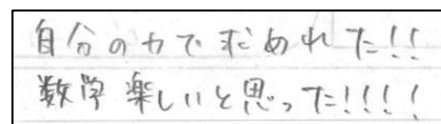 自分の力で求めれた!!
数学楽しいと思った!!!!